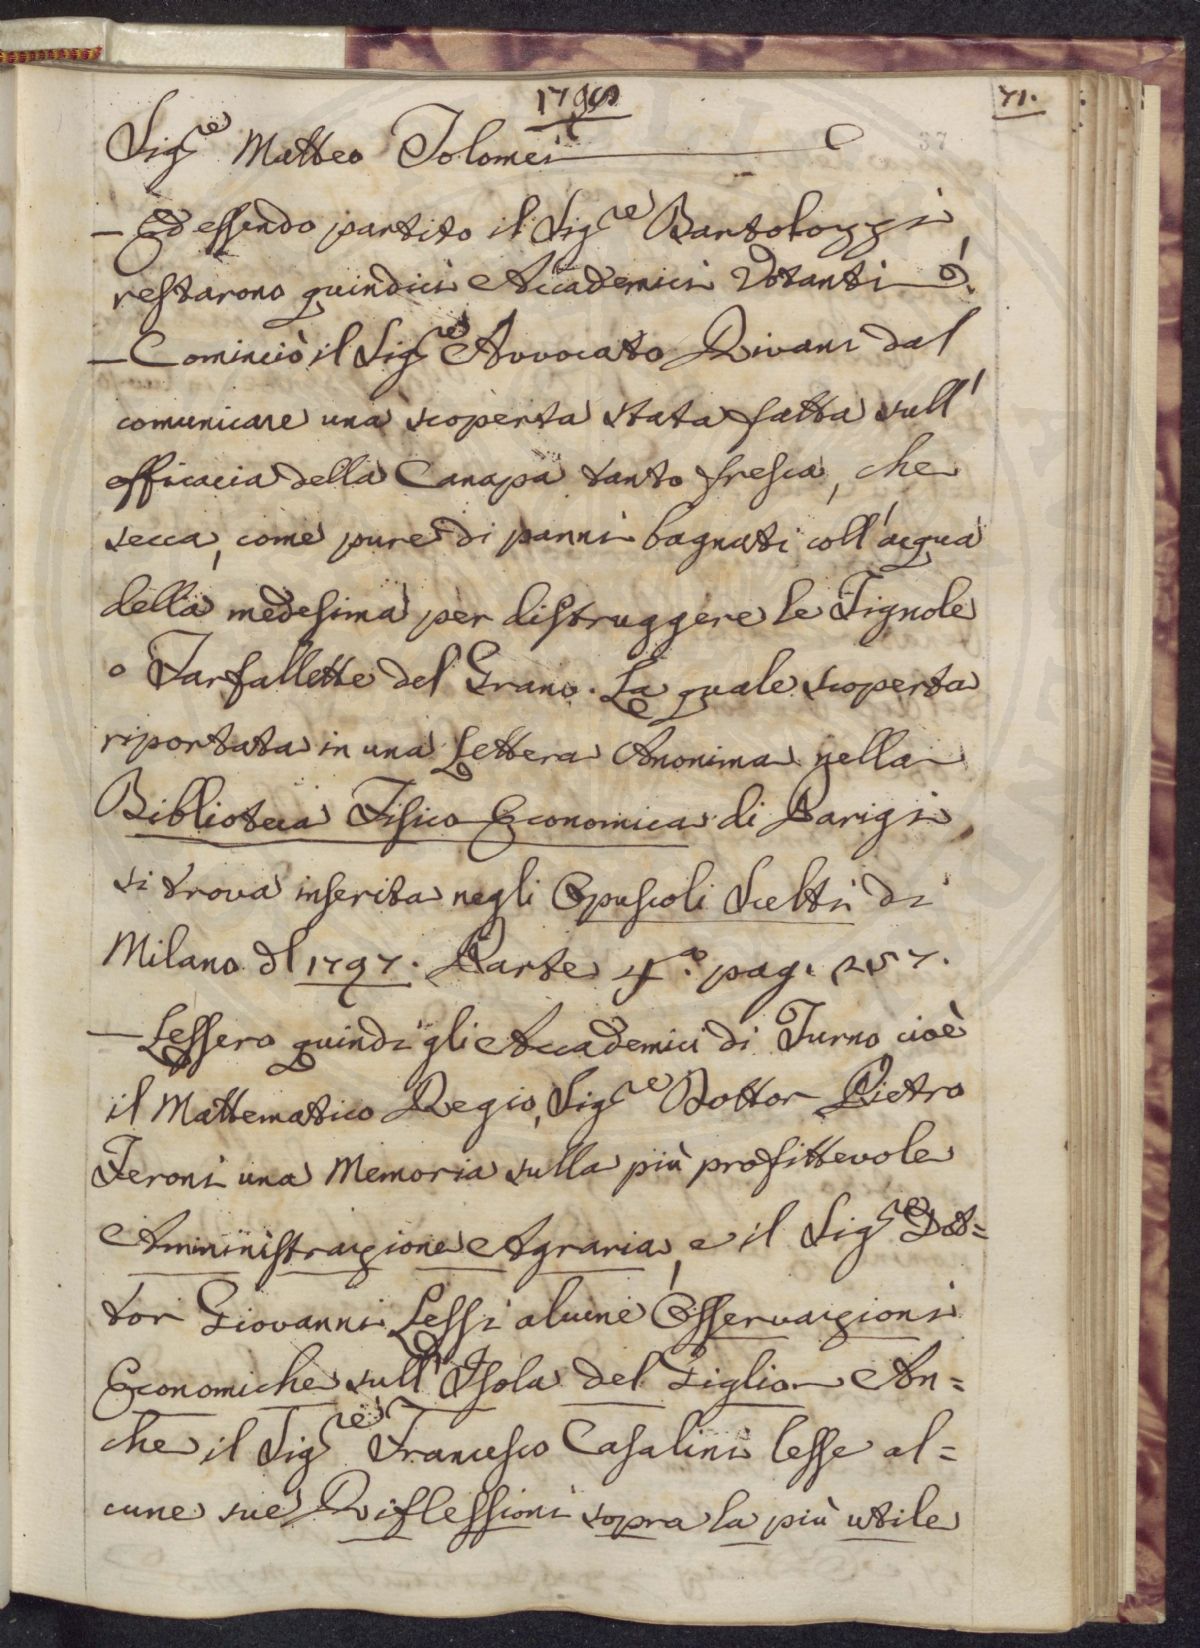 1798
71.
37
Sig.re Matteo Tolomei
— Ed essendo partito il Sig.re Bartolozzi
restarono quindici Accademici Votanti
— Cominciò il Sig.re Avvocato Rivani dal
comunicare una scoperta stata fatta sull'
efficacia della Canapa tanto fresca, che
secca, come pure di panni bagnati coll'acqua
della medesima per distruggere le Tignole
o Farfallette del Grano. La quale scoperta
riportata in una Lettera Anonima nella
Biblioteca Fisico Economica di Parigi
si trova inserita negli Opuscoli Scelti di
Milano dl 1797. Parte 4.a pag. 257.
— Lessero quindi gli Accademici di Turno cioè
il Mattematico Regio, Sig.re Dottor Pietro
Feroni una Memoria sulla più profittevole
Amministrazione Agraria, e il Sig.re Dot=
tor Giovanni Lessi alcune Osservazioni
Economiche sull'Isola del Giglio An=
che il Sig.re Francesco Casalini lesse al=
cune sue Riflessioni sopra la più utile